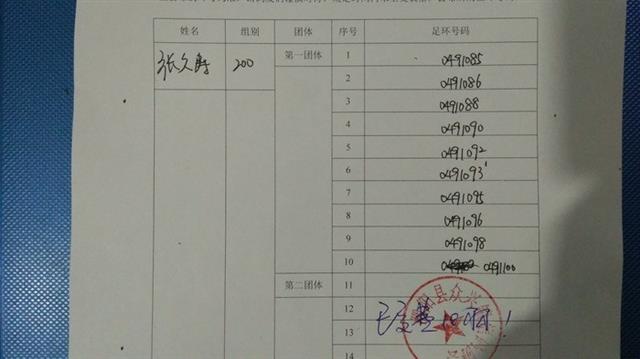 姓名 组别 团体 序号 足环号码
张久寿 200 第一团体 1 0491085
2 0491086
3 0491088
4 0491090
5 0491092
6 0491093
7 0491095
8 0491096
9 0491098
10 0491100
第二团体 11
12
13
14